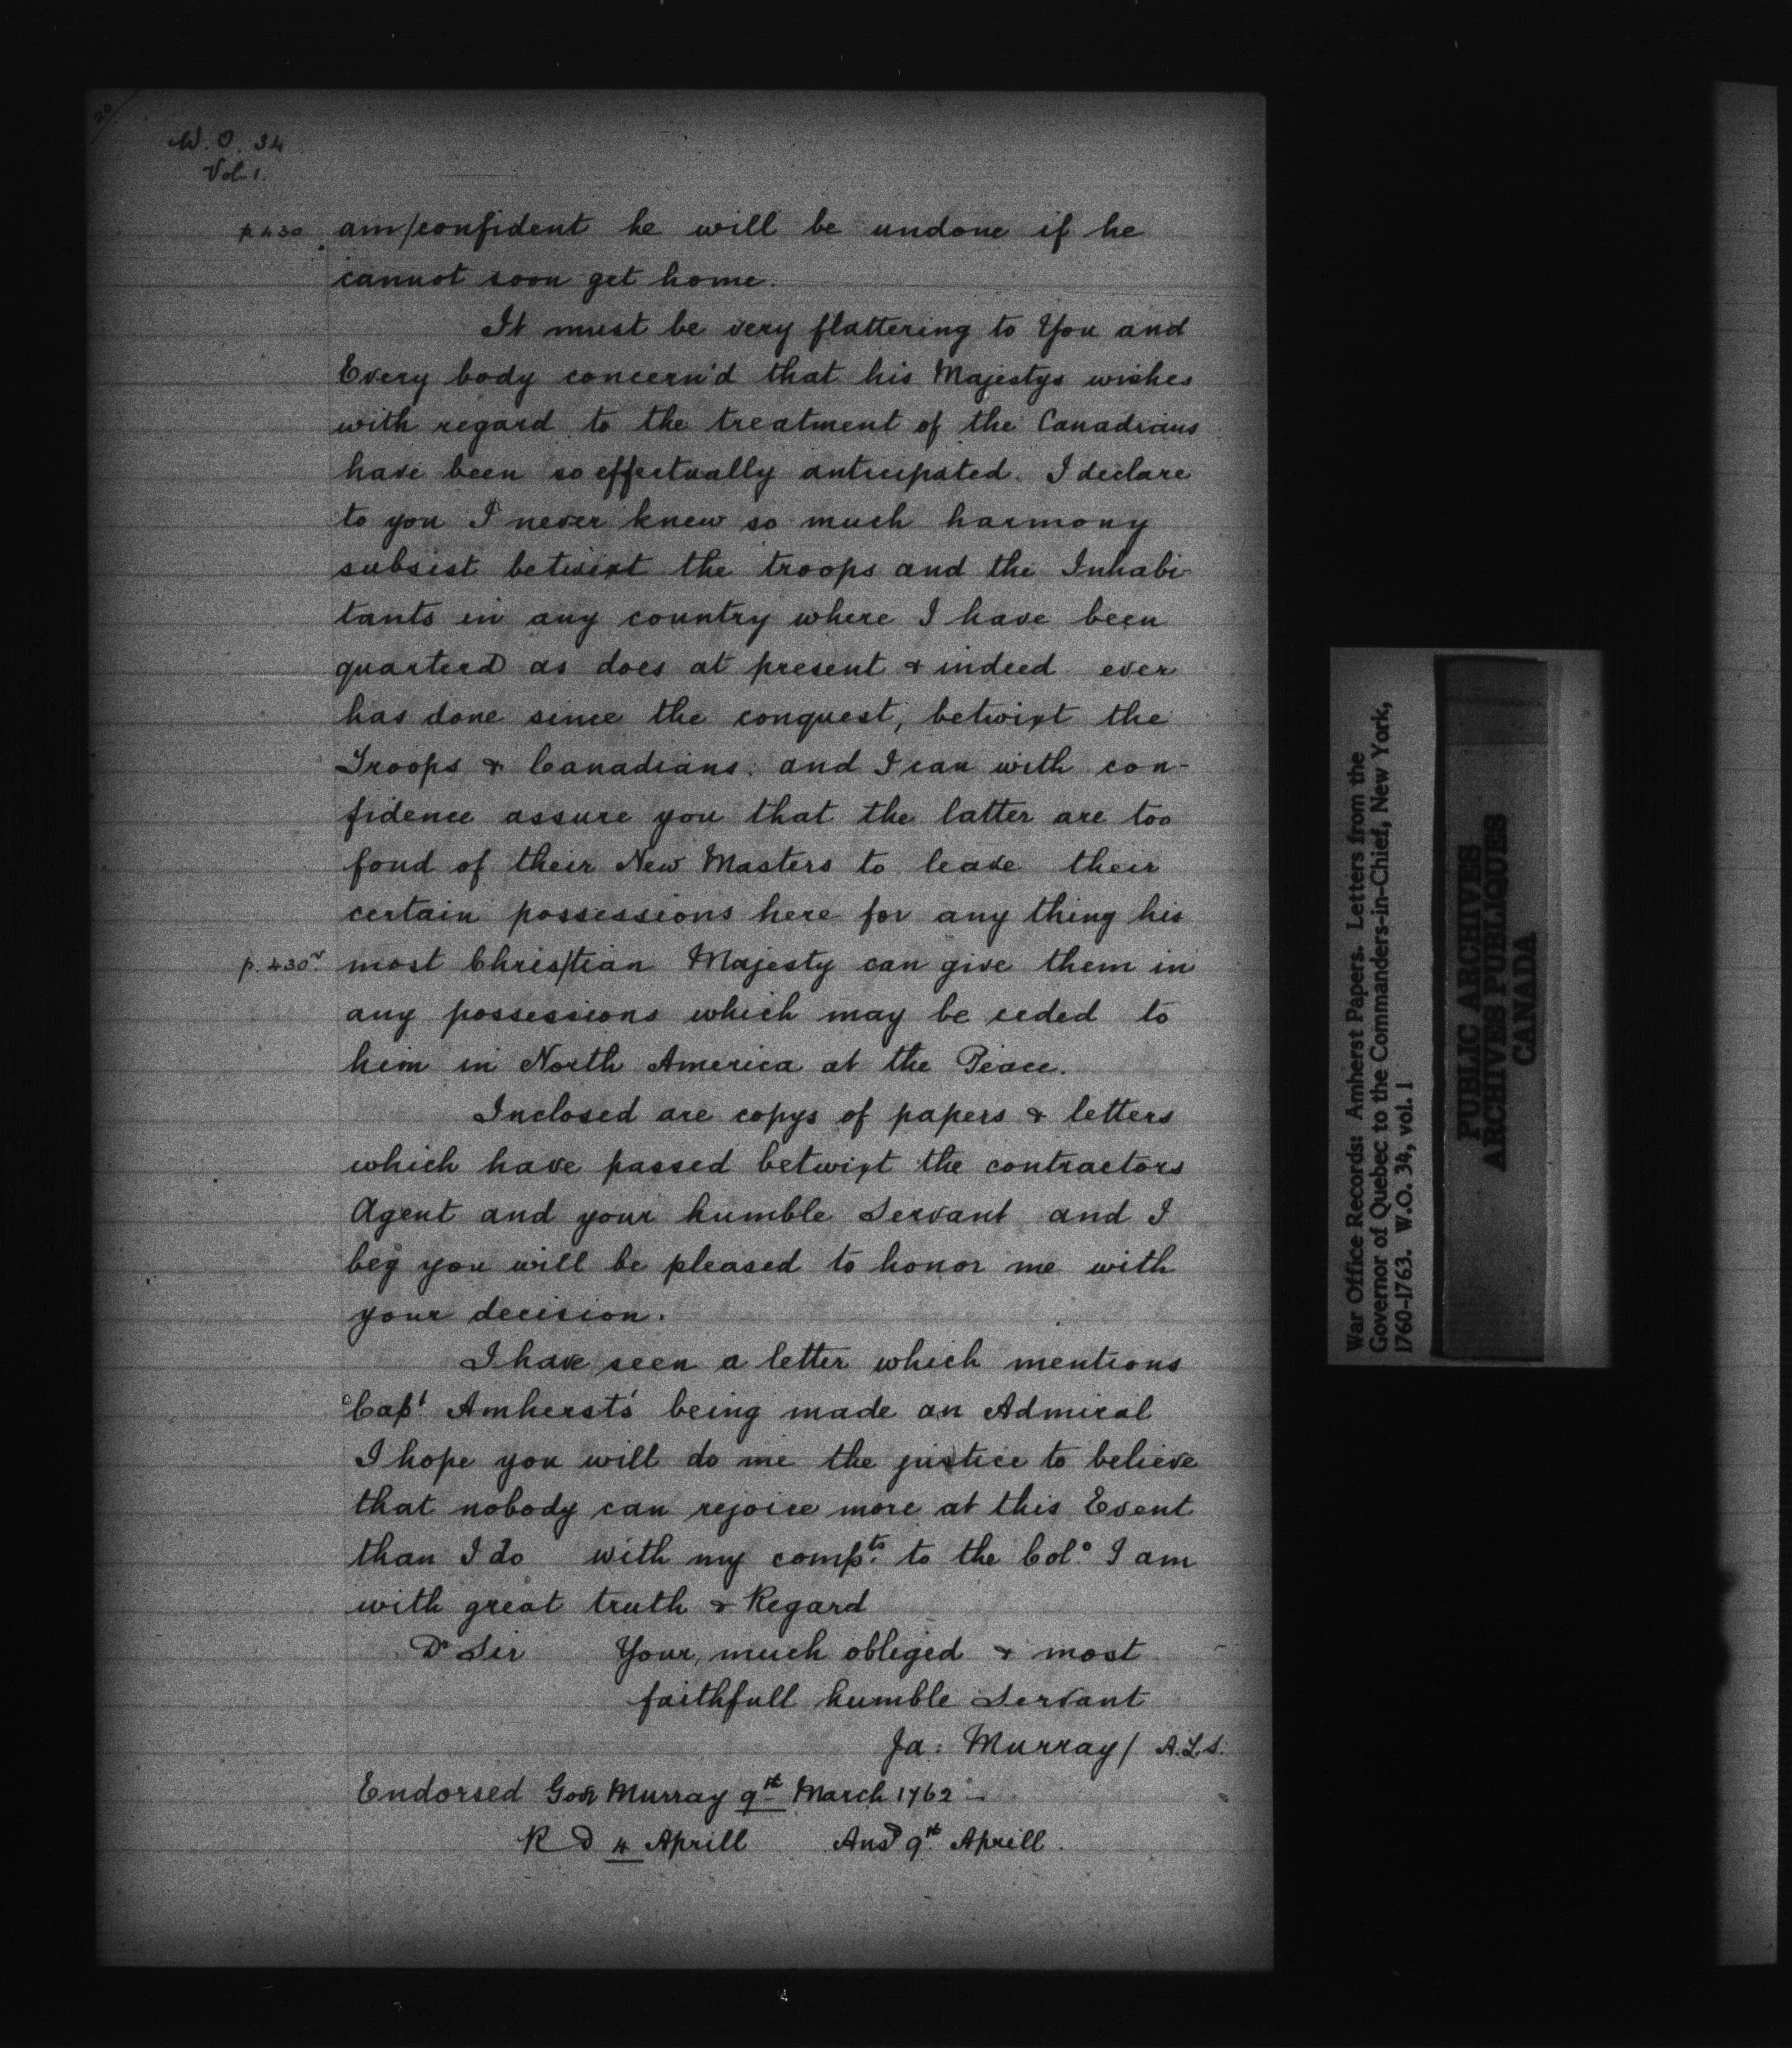 20
W. O. 34
Vol. 1.
p. 430 am/confident he will be undone if he
cannot soon get home.
It must be very flattering to You and
Every body concern'd that his Majestys wishes
with regard to the treatment of the Canadians
have been so effectually anticipated. I declare
to you I never knew so much harmony
subsist betwixt the troops and the Inhabi-
tants in any country where I have been
quarterd as does at present & indeed ever
has done since the conquest, betwixt the
Troops & Canadians. and I can with con-
fidence assure you that the latter are too
fond of their New Masters to leave their
certain possessions here for any thing his
p. 430v. most Chris/tian Majesty can give them in
any possessions which may be ceded to
him in North America at the Peace.
Inclosed are copys of papers & letters
which have passed betwixt the contractors
Agent and your humble Servant and I
beg you will be pleased to honor me with
your decision.
I have seen a letter which mentions
Capt Amherst's being made an Admiral
I hope you will do me the justice to believe
that nobody can rejoice more at this Event
than I do with my compts. to the Colo. I am
with great truth & Regard
Dr Sir Your, much obliged & most
faithfull humble Servant
Ja: Murray/ A.L.S.
Endorsed Govr Murray 9th March 1762 -
R D 4 Aprill Ansd 9th Aprill.
War Office Records: Amherst Papers. Letters from the
Governor of Quebec to the Commanders-in-Chief, New York,
1760-1763. W.O. 34, vol. 1
PUBLIC ARCHIVES
ARCHIVES PUBLIQUES
CANADA